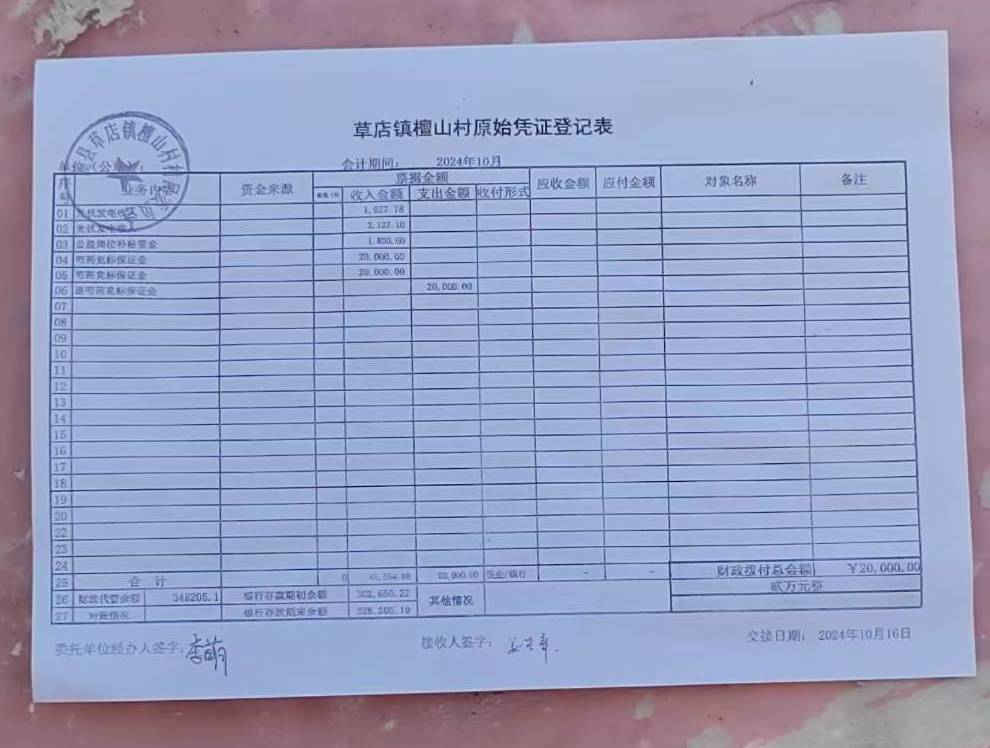 草店镇檀山村原始凭证登记表
单位（公章）： 会计期间： 2024年10月
序号 业务内 资金来源 票据金额 应收金额 应付金额 对象名称 备注
收入金额 支出金额 收付形式
01 光伏发电收入 1,627.78
02 光伏发电收入 2,127.10
03 公益岗位补贴资金 1,800.00
04 芍药竞标保证金 20,000.00
05 芍药竞标保证金 20,000.00
06 退芍药竞标保证金 20,000.00
07
08
09
10
11
12
13
14
15
16
17
18
19
20
22
23
24
25 合 计 0 45,554.88 20,000.00 现金/银行 - - 财政拨付总金额 ￥20,000.00
26 财政代管余额 348205.1 银行存款期初余额 302,650.22 其他情况 贰万元整
27 对账情况 银行存款期末余额 328,205.10
委托单位经办人签字： 李萌 接收人签字： 交接日期： 2024年10月16日